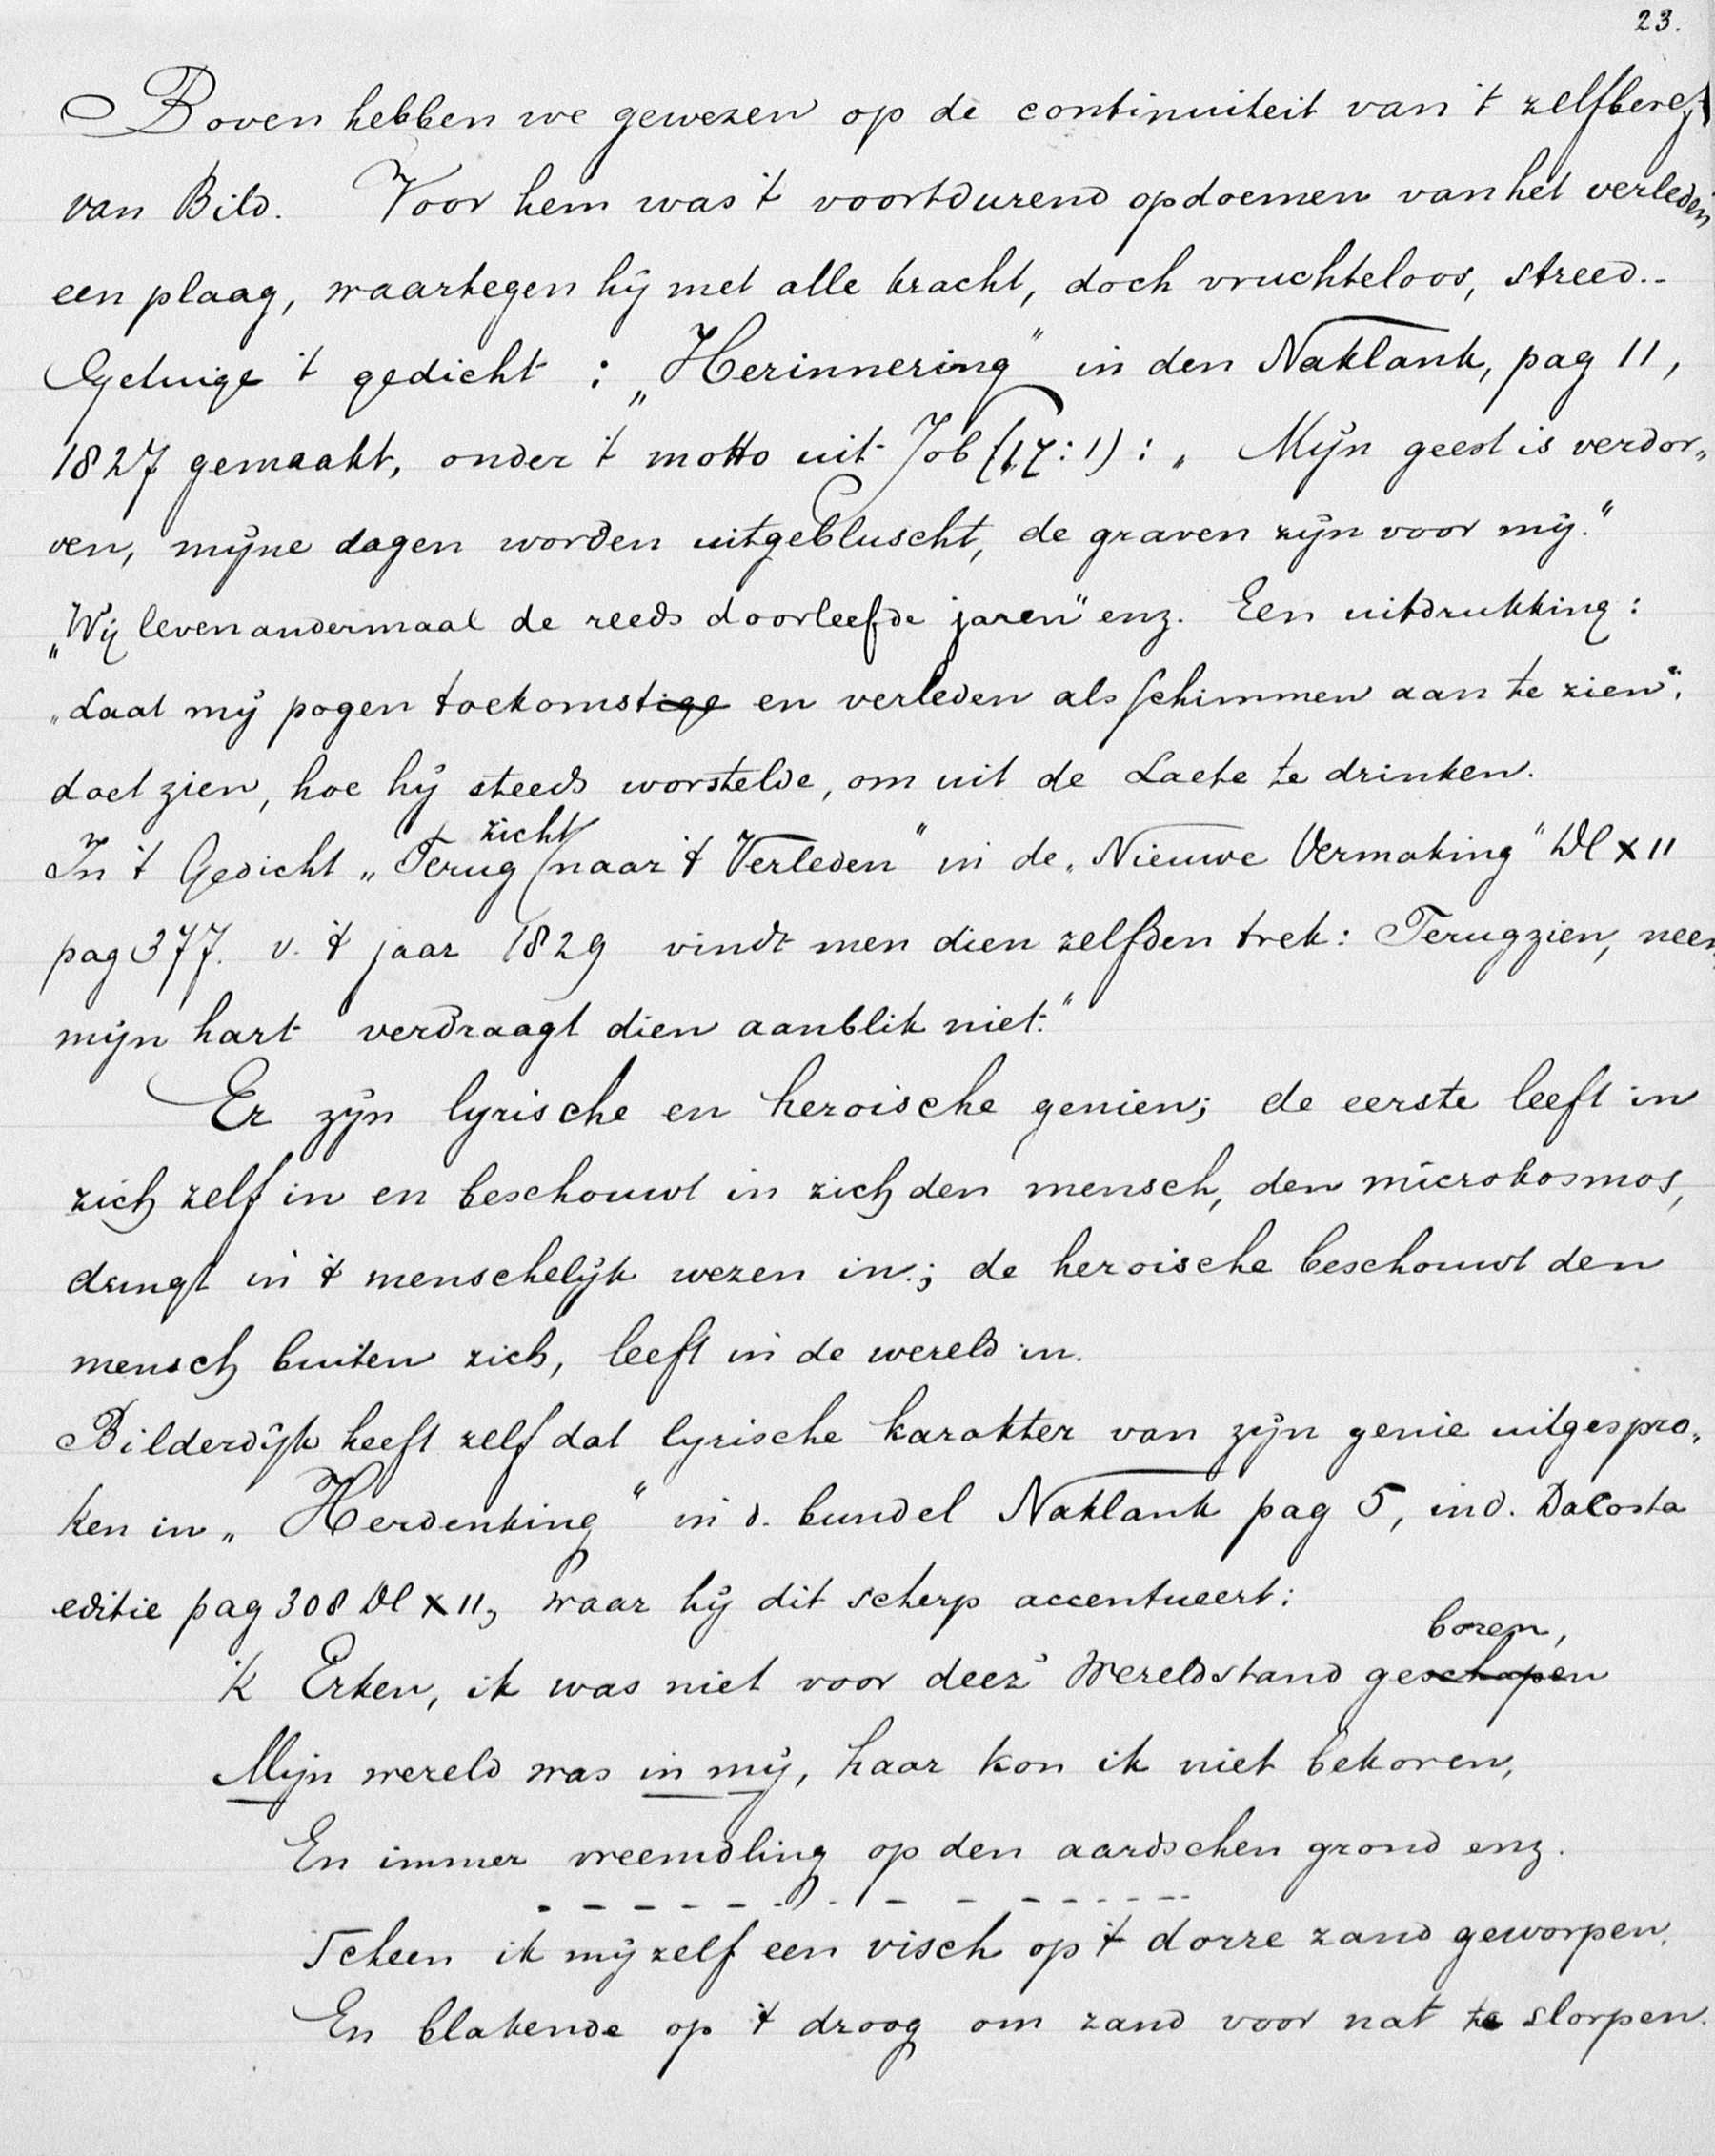 23.
Boven hebben we gewezen op de continuiteit van 't zelfbere
van Bild. Voor hem was 't voortdurend opdoemen van het verleden
een plaag, waartegen hij met alle kracht, doch vruchteloos, streed.-
Getuige 't gedicht : „Herinnering" in den Naklank, pag 11,
1827 gemaakt, onder 't motto uit Job (17:1) : „ Mijn geest is verdor„
ven, mijne dagen worden uitgebluscht, de graven zijn voor mij."
„Wij leven andermaal de reeds doorleefde jaren" enz. Een uitdrukking :
„Laat mij pogen toekomstige en verleden als schimmen aan te zien",
doet zien, hoe hij steeds worstelde, om uit de Laethe te drinken.
In 't Gedicht „Terugzicht naar 't Verleden" in de „Nieuwe Vermaking" Dl XII
pag 377. v. 't jaar 1829 vindt men dien zelfden trek: Terugzien, neen,
mijn hart verdraagt dien aanblik niet."
Er zijn lyrische en heroische genien; de eerste leeft in
zich zelf in en beschouwt in zich den mensch, den microkosmos,
dringt in 't menschelijk wezen in; de heroische beschouwt den
mensch buiten zich, leeft in de wereld in.
Bilderdijk heeft zelf dat lyrische karakter van zijn genie uitgespro„
ken in „Herdenking" in d. bundel Naklank pag 5, in d. DaCosta
editie pag 308 Dl XII, waar hij dit scherp accentueert:
'k Erken, ik was niet voor deez' Wereldstand geschapen boren,
Mijn wereld was in mij, haar kon ik niet bekoren,
En immer vreemdling op den aardschen grond enz.
- - - - - - - - - - - - - -
Scheen ik mij zelf een visch op 't dorre zand geworpen,
En blakende op 't droog om zand voor nat te slorpen.